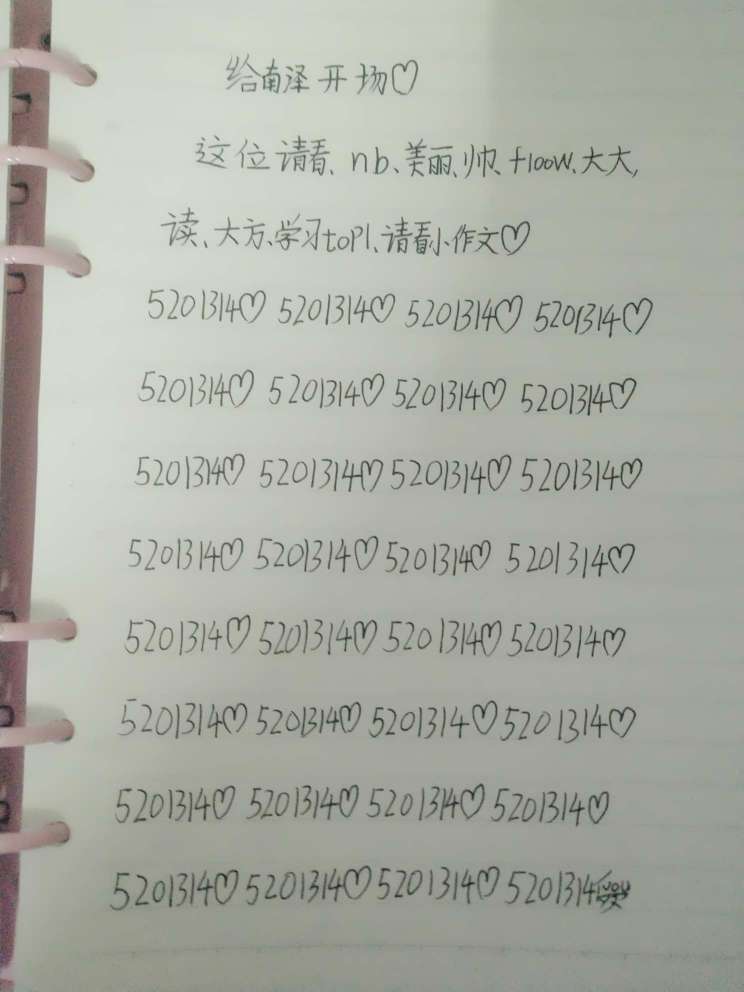 给南泽开场♡
这位请看、nb、美丽、帅、floow、大大,
读、大方、学习top1、请看小作文♡
5201314♡ 5201314♡ 5201314♡ 5201314♡
5201314♡ 5201314♡ 5201314♡ 5201314♡
5201314♡ 5201314♡ 5201314♡ 5201314♡
5201314♡ 5201314♡ 5201314♡ 5201314♡
5201314♡ 5201314♡ 5201314♡ 5201314♡
5201314♡ 5201314♡ 5201314♡ 5201314♡
5201314♡ 5201314♡ 5201314♡ 5201314♡
5201314♡ 5201314♡ 5201314♡ 5201314